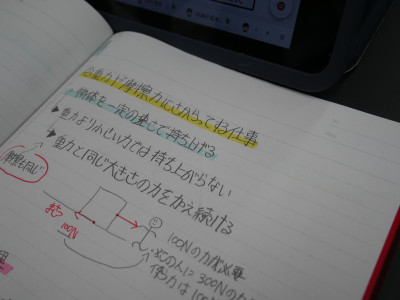 ◎重力や摩擦力にさからってする仕事
物体を一定の速さで持ち上げる
▶重力より小さい力では持ち上がらない
▶重力と同じ大きさの力をかえ続ける
摩擦も同じ
まさつ
100N
100Nの力が必要
300Nの
使う力は100